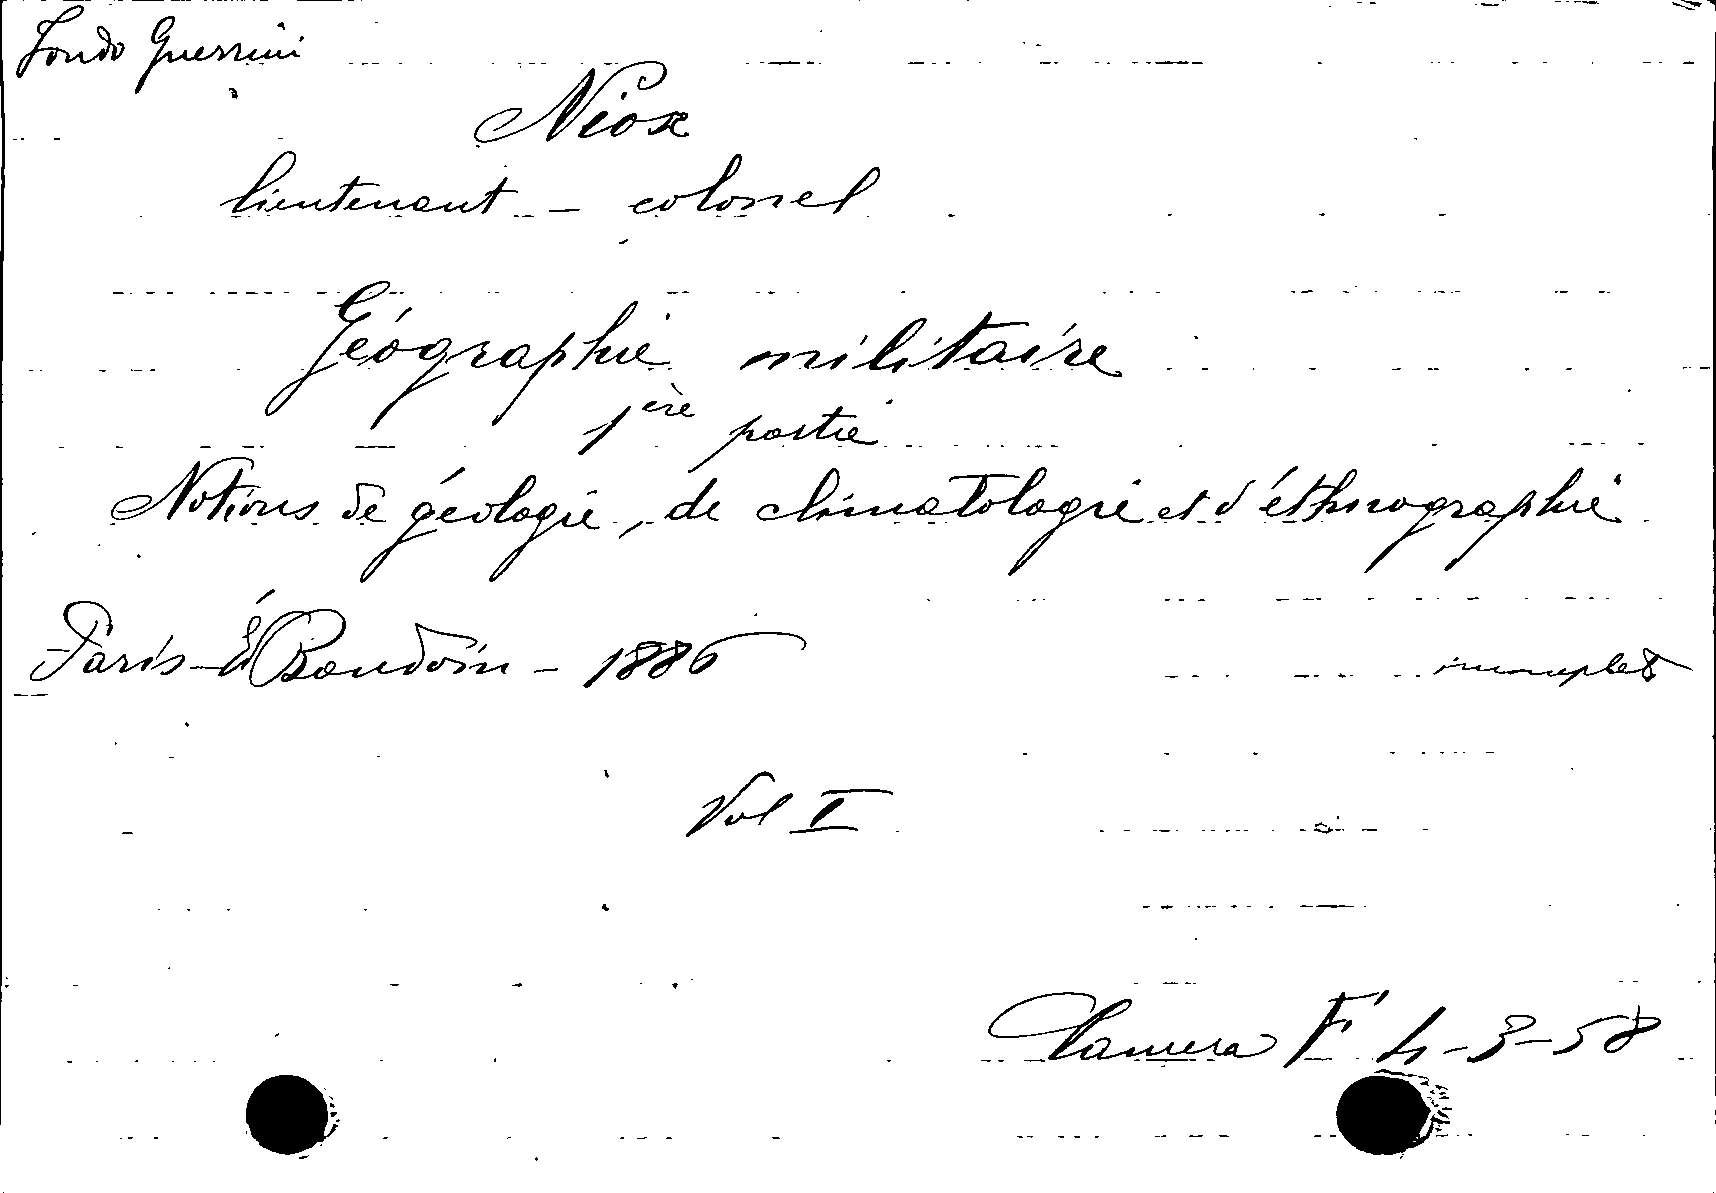 Fondo Guerrini
Niox
lieutenant - colonel
Géographie militaire
1ère partie
Notions de géologie, de climatologie et d'éthnographie
Paris - É Baudoin - 1886
incomplet
Vol I
Camera F 4-3-58